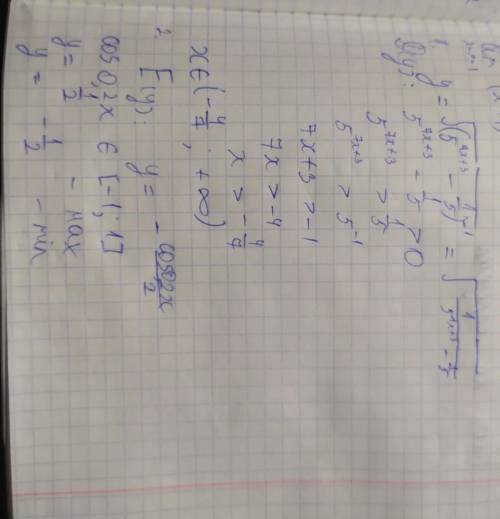 1. y = √((5^(7x+3) - 1/5)^(-1)) = √(1/(5^(7x+3) - 1/5))
D(y): 5^(7x+3) - 1/5 > 0
5^(7x+3) > 1/5
5^(7x+3) > 5^(-1)
7x+3 > -1
7x > -4
x > -4/7
x ∈ (-4/7; +∞)
2. E(y): y = - cos0,2x/2
cos 0,2x ∈ [-1; 1]
y = 1/2 - max
y = -1/2 - min